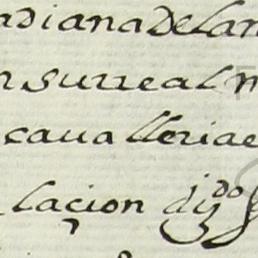 ndiana de lan
n su rreal m
caualleria e
laçion dy^do